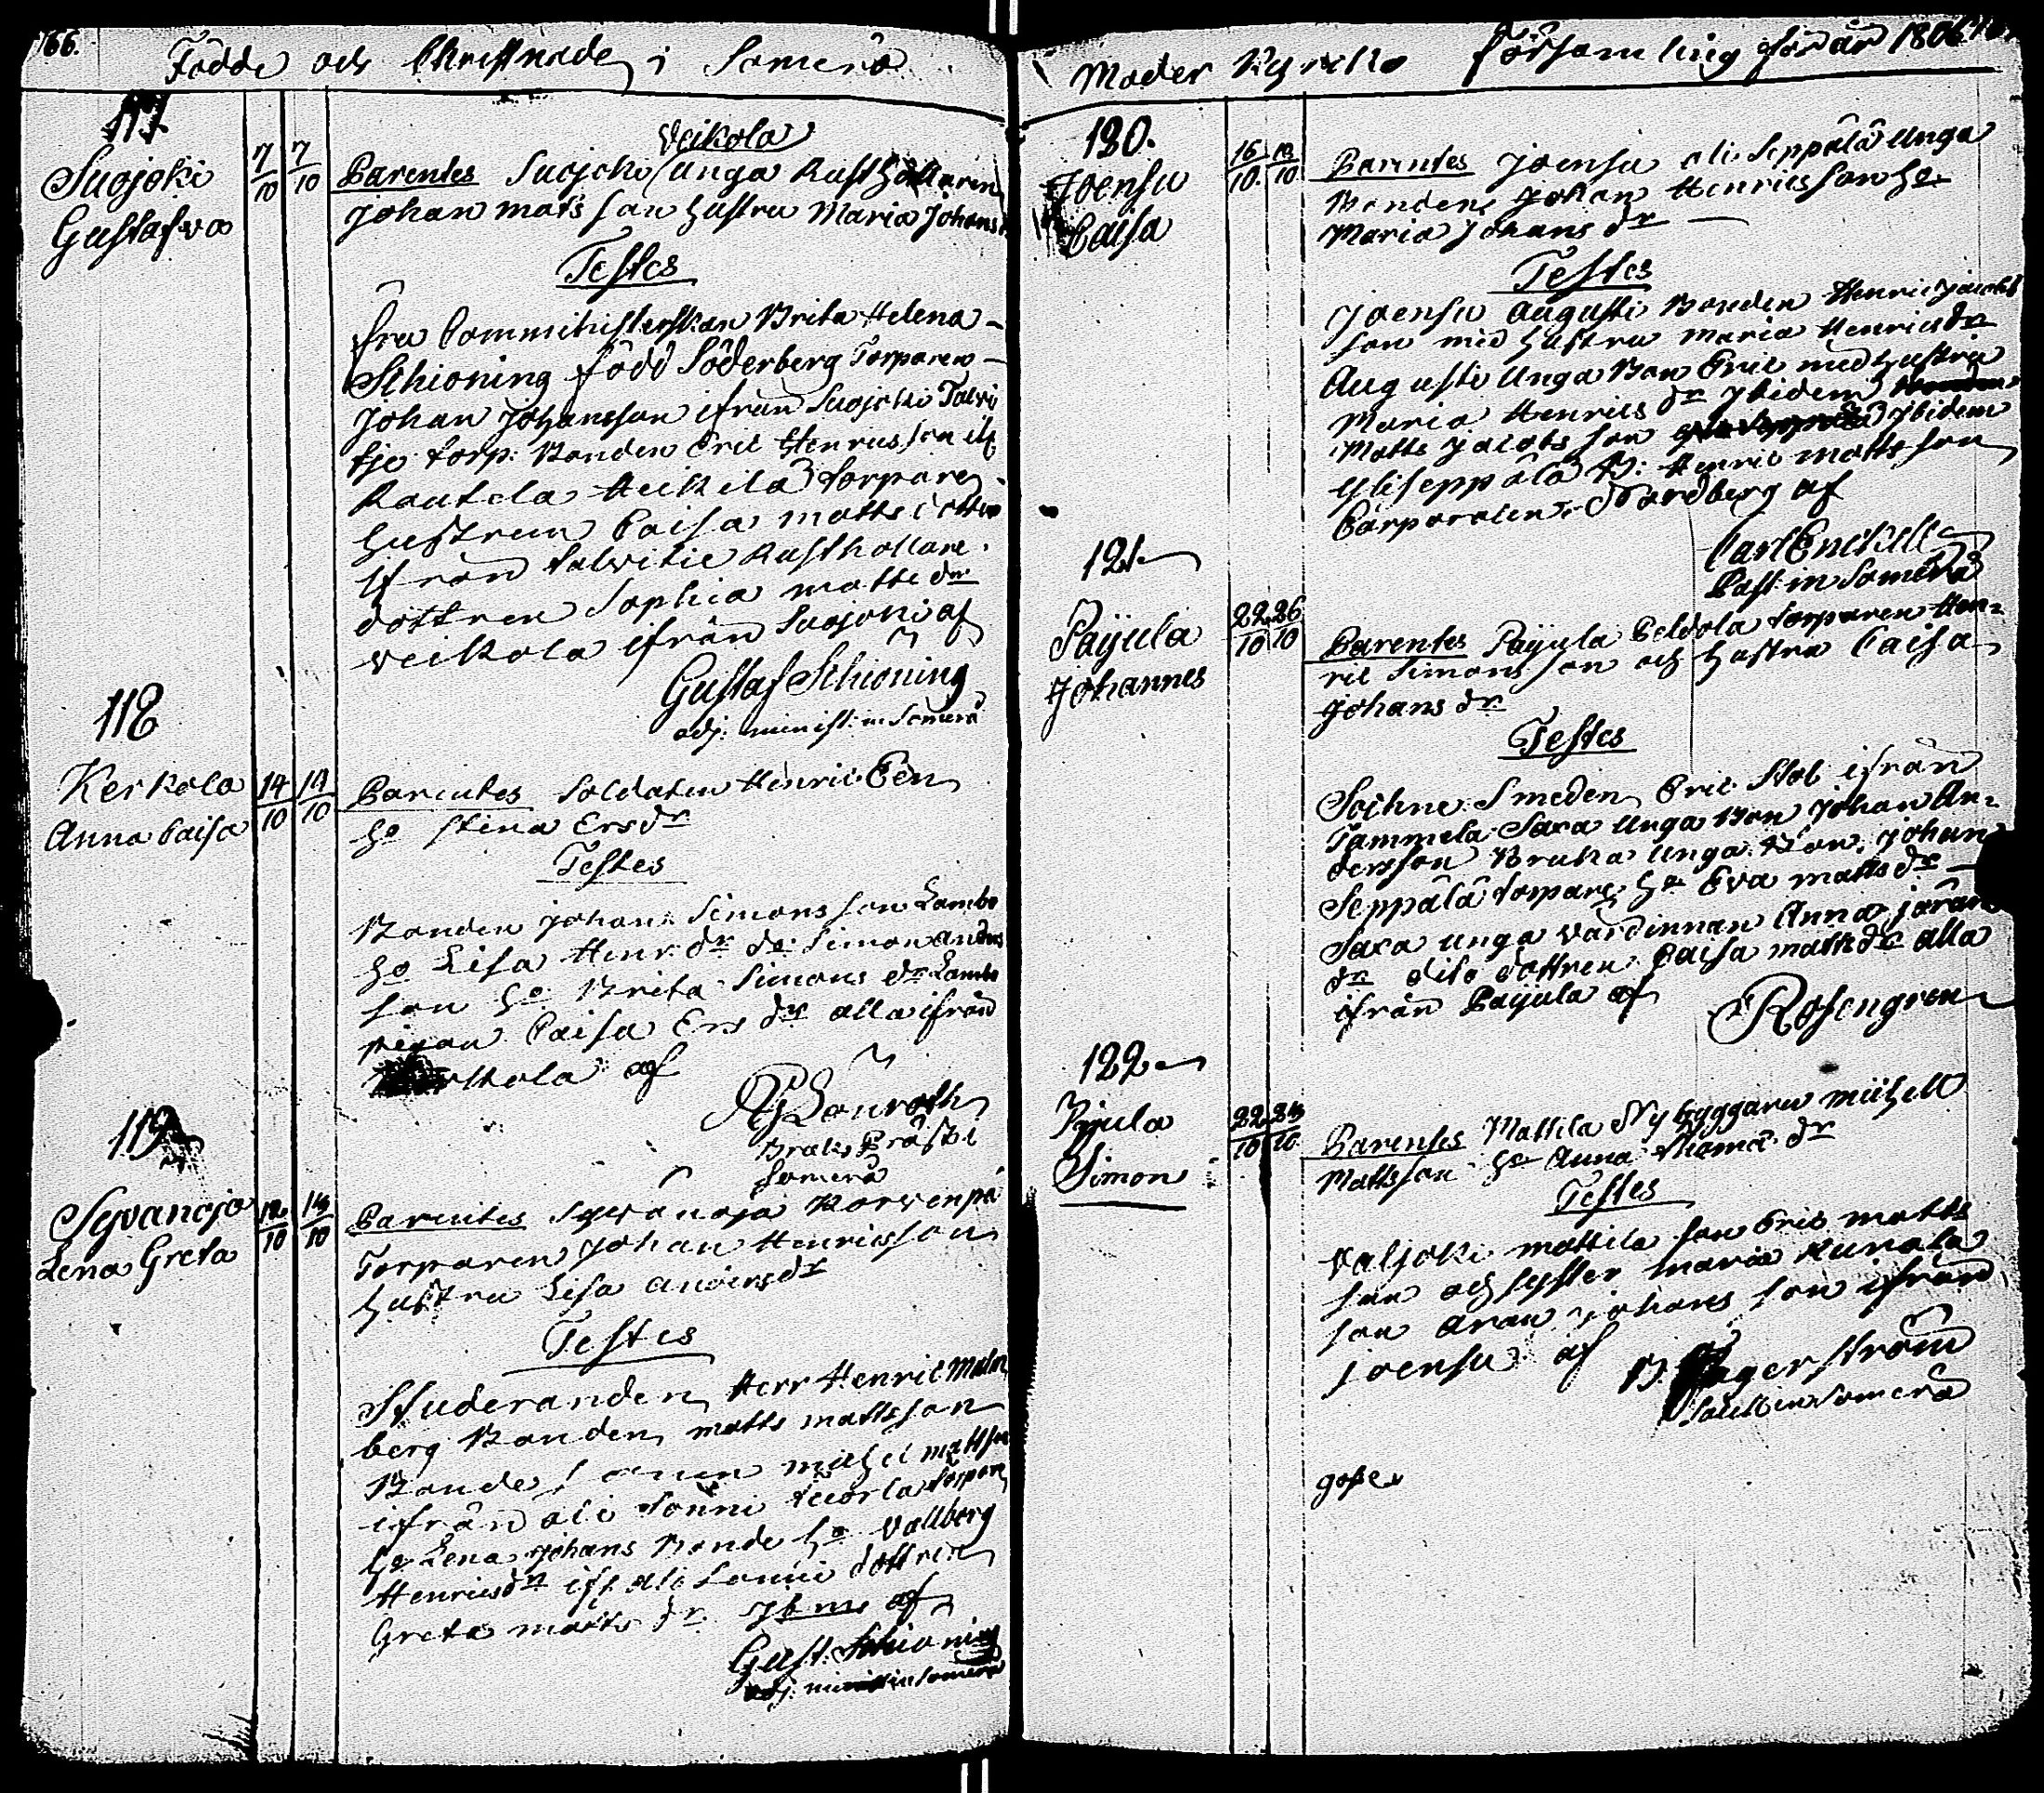 166.
Födde och Christnade i Somero
117.
Suojoki
Gustafva
7/10 7/10
Veikola
Parentes Suojoki Unga Rusthållaren
Johan Mats son hustru Maria Johans
Testes
Fru Comministerskan Brita Helena
Schioning född Söderberg Torparen
Johan Johansson ifrån Suojoki Talvi
tje torp: Bonden Eric Henricsson if
Rautela Heikilä torpare
hustrun Caisa Matts
ifrån Talvitie Rusthollare
dottren Sophia Matts dr
Veikola ifrån Suojoki af
Gustaf Schioning
adj: minist: in Somero
118
Kerkola
Anna Caisa
14/10 14/10
Parentes Soldaten Henric Een
ho Stina Ersdr
Testes
Bonden Johan Simons son Lambo
ho Lisa Henr. dr do: Simon Anders
son ho Brita Simons dr Lambo
pigan Caisa Ers dr alla ifrån
Kerkola af
Bonroth
Bruks Präst i
Somero
119
Syvänoja
Lena Greta
12/10 14/10
Parentes Syvänoja Korvenpä
Torparen Johan Henricsson
hustru Lisa Andersdr
Testes
Studeranden Herr Henric Malm
berg Bonden Matts Mattsson
Bonde sonen Michel Mattson
ifrån ali Sonni Kuorla torpare
ho Lena Johans Bonde ho Vallborg
Henricsdr ifr ali Sonni dottren
Greta Matts dr. Ibm af
Gust: Schioning
adj: minist in Somero
Moder Kyrko Församling för år 1806
120.
Joensu
Caisa
16/10. 18/10
Parentes Joensu ali Seppälä Unga
Bonden Johan Henricsson ho
Maria Johans dr
Testes
Joensu Augusti Bonden Henric Jacobs
son med hustru Maria Henricsdr
Augusti Unga Bon Eric med hustru
Maria Henrics dr Ibidem
Matts Jacobs son Ibidem
Yliseppälä B: Henric Matts son
Corporalen Nordberg af
Carl Enckell
Past: in Somero
121
Paijula
Johannes
22/10 26/10
Parentes Paijula Peldola torparen Hen=
ric Simons son och hustru Caisa
Johans dr
Testes
Soihne Smeden Eric Stol ifrån
Tammela Saxa Unga Bon Johan An=
dersson Bruka Unga Bon Johan
Seppälä torpare ho Eva Matts dr
Saxa unga värdinnan Anna Jörän
dr dito dottren Caisa Matts dr alla
ifrån Paijula af
Rosengren
122
Pajula
Simon
22/10 24/10
Parentes Mattila Nybyggaren Michell
Mattsson ho Anna Thomæ dr
Testes
Valjoki Mattila son Eric Matts
son och syster Maria Kunola
son Aran Johans son ifrån
Joensu af
B. Lagerström
Sacell in Somero